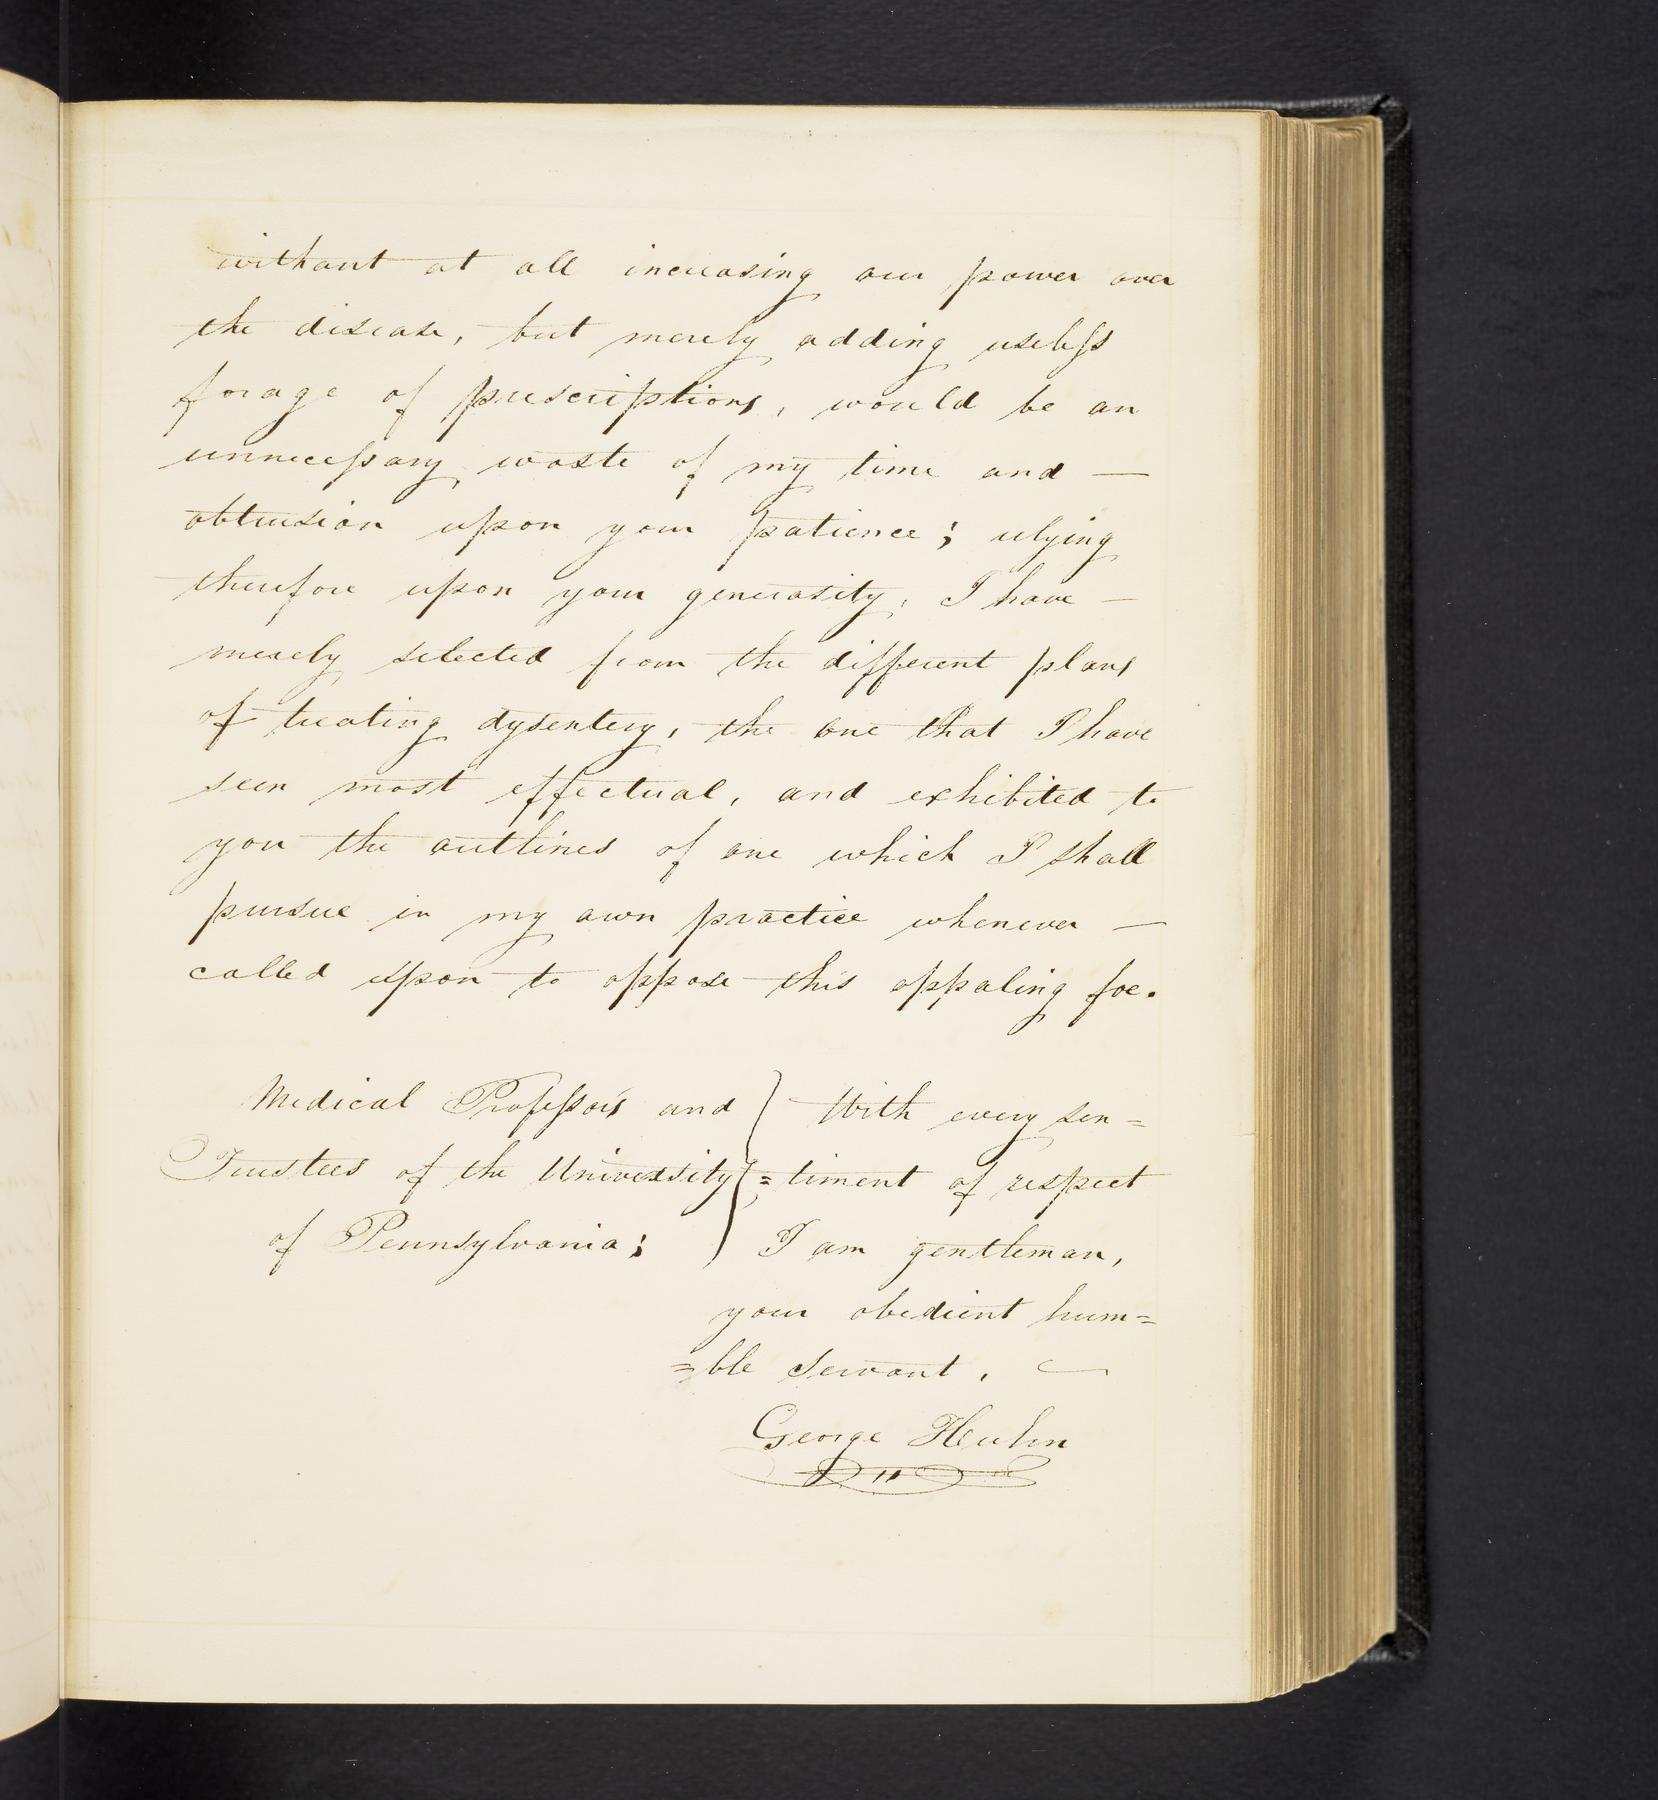 without at all increasing our power over
the disease, but merely adding useless
forage of prescriptions, would be an
unnecessary waste of my time and —
obtrusion upon your patience; relying
therefore upon your generosity, I have —
merely selected from the different plans
of treating dysentery, the one that I have
seen most effectual, and exhibited to
you the outlines of one which I shall
pursue in my own practice whenever —
called upon to oppose this appaling foe.
Medical Professors and
Trustees of the University
of Pennsylvania;
With every sen=
=timent of respect
I am gentleman,
your obedient hum=
=ble servant,
George Huhn